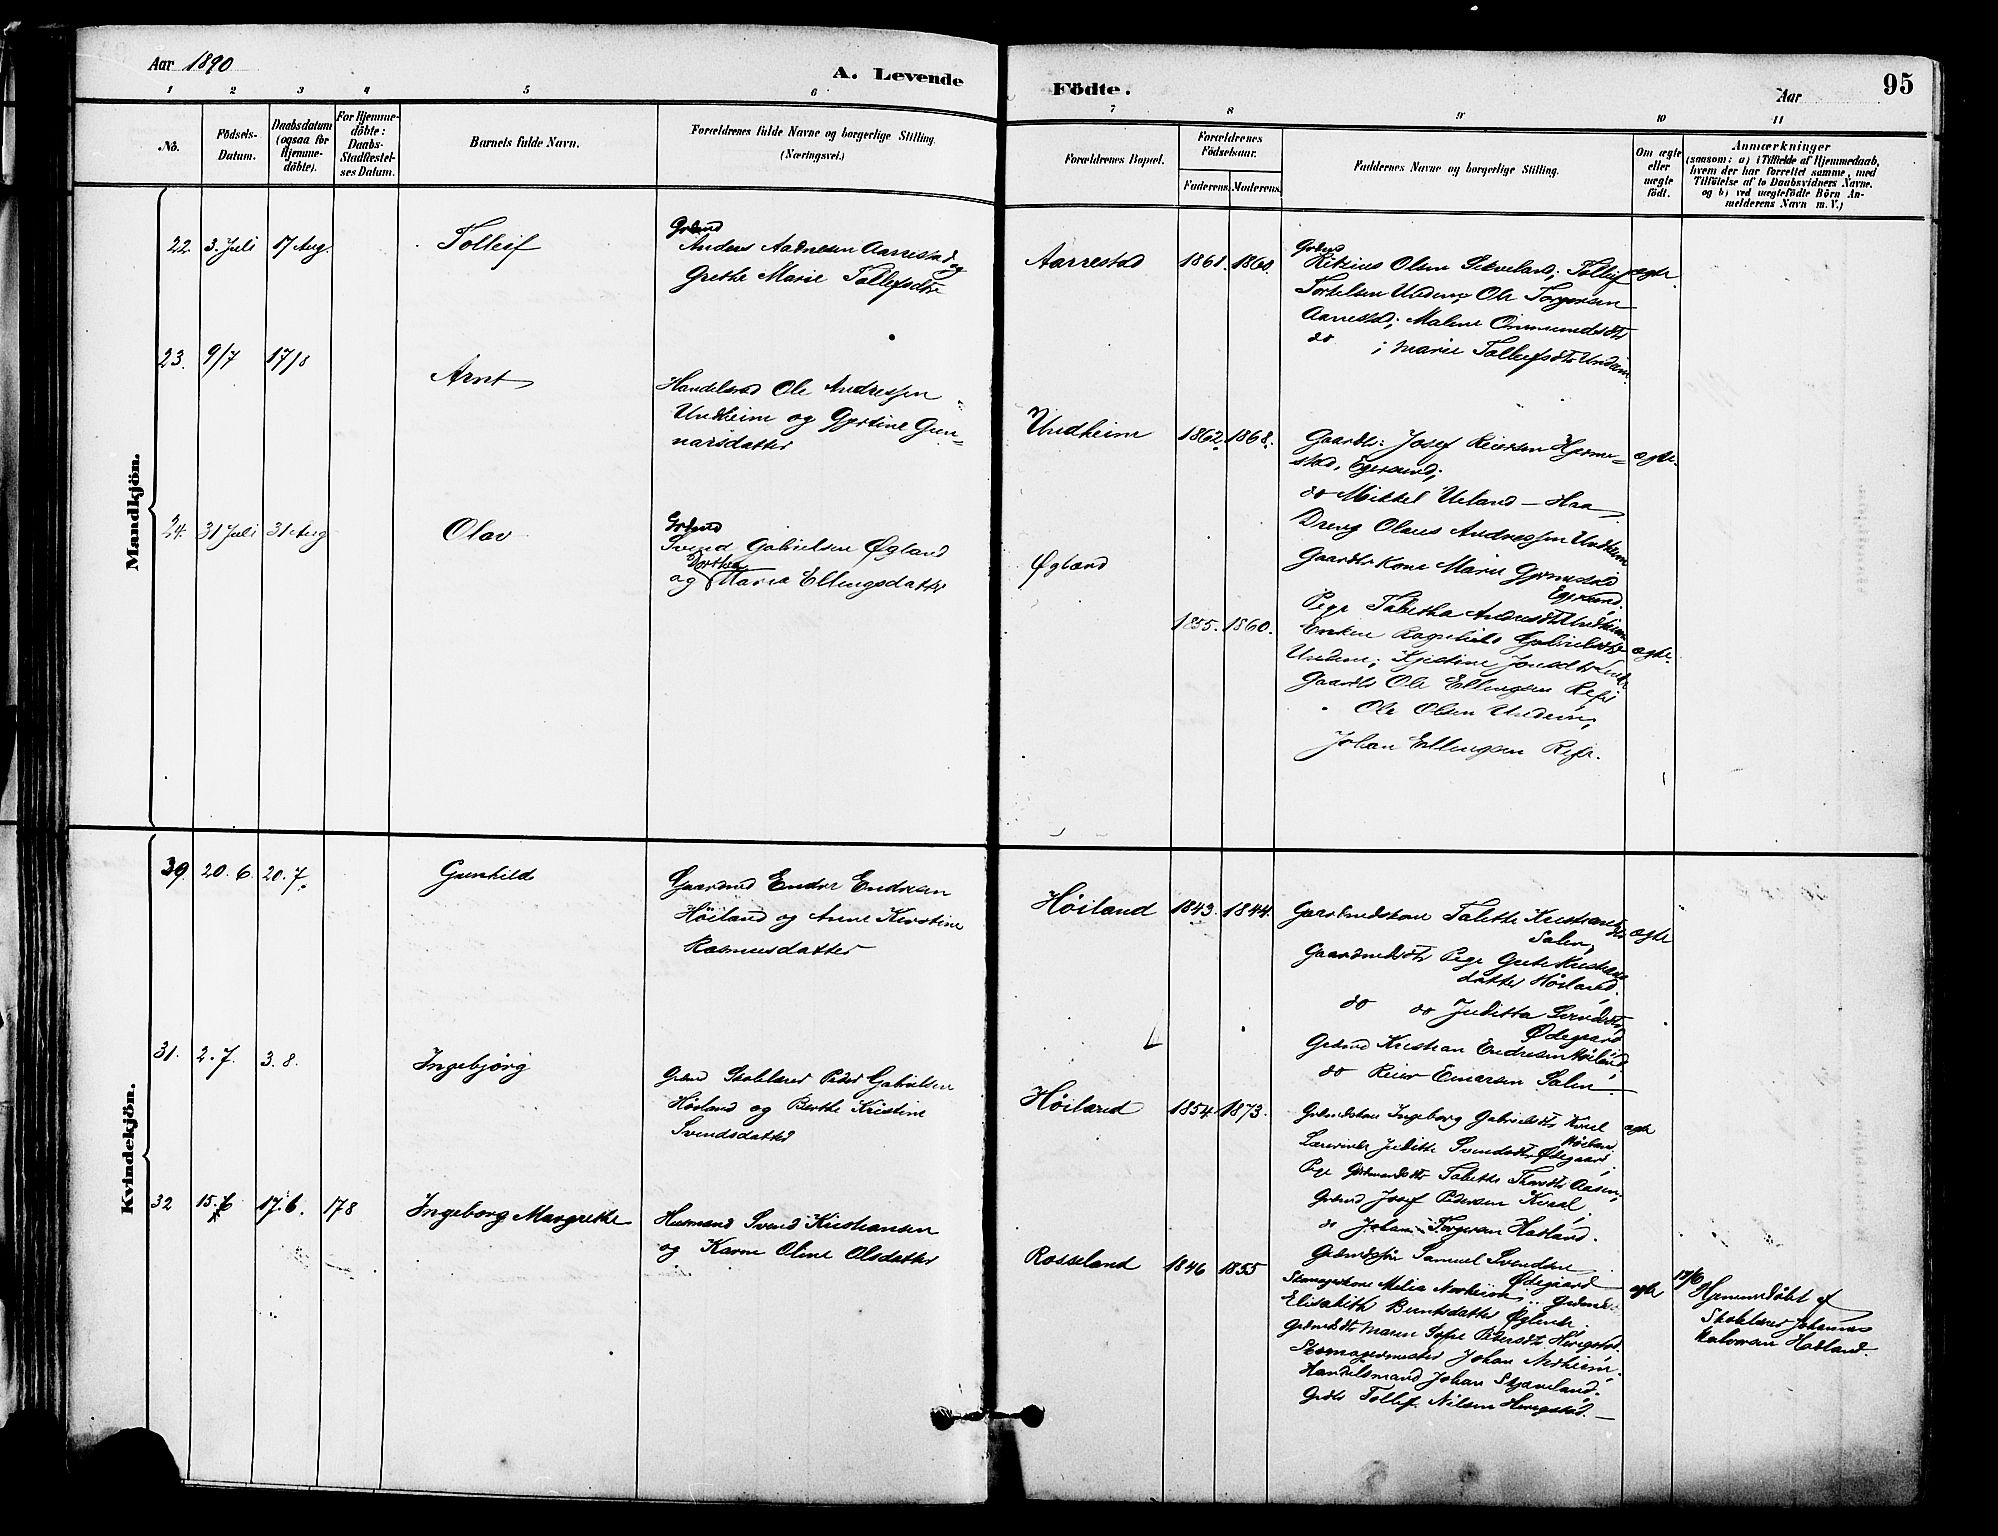 Aar 1890
A. Levende
Födte.
Aar
95
1 2 3 4 5 6 7 8 9 10 11
No.
Födsels-
Datum.
Daabsdatum
(ogsaa for
Hjemme-
döbte).
For Hjemme-
döbte:
Daabs-
Stadfæstel-
ses Datum.
Barnets fulde Navn.
Forældrenes fulde Navne og borgerlige Stilling.
(Næringsvei.)
Forældrenes Bopæl.
Forældrenes
Födselsaar.
Faderens. Moderens.
Faddernes Navne og borgerlige Stilling.
Om ægte
eller
uægte
født.
Anmærkninger
(saasom: a) i Tilfælde af Hjemmedaab,
hvem der har forrettet samme, med
Tilföielse af to Daabsvidners Navne.
og b) ved uægtefödte Börn An-
melderens Navn m. V.)
Mandkjön.
22. 3. Juli 17 Aug. Tolleif
Grdmd
Anders Aadnesen Aarrestad og
Grethe Marie Tollefsdtr
Aarrestad 1861. 1860.
Grdmd
Olsen Sekveland; Tolleif
Torkelsen Undem; Ole Torgersen
Aarrestad; Malene Ommundsdtr
do ; Marie Tollefsdtr Undem.
ægte.
23. 9/7 17/8 Arnt
Handelsmd Ole Andressen
Undheim og Gjertine Gun-
narsdatter
Undheim 1862. 1868.
Gaardbr: Josef Reiersen Hjerme-
stad, Egersund;
do Mikkel Ueland - Haa
Dreng Olaus Andressen Undheim
Gaardbr Kone Marie Gjermestad
Egersund.
Pige Tabitha Andresdtr Undheim
ægte.
24. 31 Juli 31 Aug Olav
Grdmd
Svend Gabrielsen Øgland
Dorthea
og Maria Ellingsdatter
Øgland
1855. 1860.
Enken Ragnhild Gabrielsdtr
Undem; Kjistine Jonsdtr
Gaardbr Ole Ellingsen Refs
" Ole Olsen Undem,
Johan Ellingsen Refs.
ægte.
Kvindekjön.
29. 20. 6. 20. 7. Gunhild
Gaardmd Endre Endresen
Höiland og Anne Kirstine
Rasmusdatter
Höiland 1843. 1844.
Gaardmdskone Talette Kristiansdtr
Salen,
Gaardmdsdtr Pige Grete Kristians
datter Höiland.
do do Juditta Svendsdtr
Ødegaard
Grdmd Kristian Endresen Höiland,
do Reier Einersen Salen
ægte
31. 2. 7. 3. 8. Ingebjörg
Grdmd Skolelærer Peder Gabrielsen
Höiland og Berthe Kristine
Svendsdatter
Höiland 1854. 1873.
Grdmdskone Ingeborg Gabrielsdtr Kvael
Höiland
Judithe Svendsdtr Ødegaard
Pige Grdmandsdtr Tabitha Aasen,
Grdmd Josef Pedersen Kvaal,
do Johan Torgersen Hatland.
ægte
32 15. 6 17. 6. 17 8 Ingeborg Margrethe
Husmand Svend Kristiansen
og Karen Oline Olsdatter
Rosseland 1846 1855
Grdmdssön Samuel Svendsen
Ødegaard
Skomagerkone Malia Norheim
Elisabeth Berntsdatter
Grdmdsdtr Maren Sofie Pedersdtr Herigstad.
Skomagermester Johan Norheim,
Handelsmand Johan Skjæveland.
Grdbr Tollef Nilsen Herigstad.
ægte
17/6
Hjemmedöbt af
Skolelærer Johannes
Halvorsen Hatland.